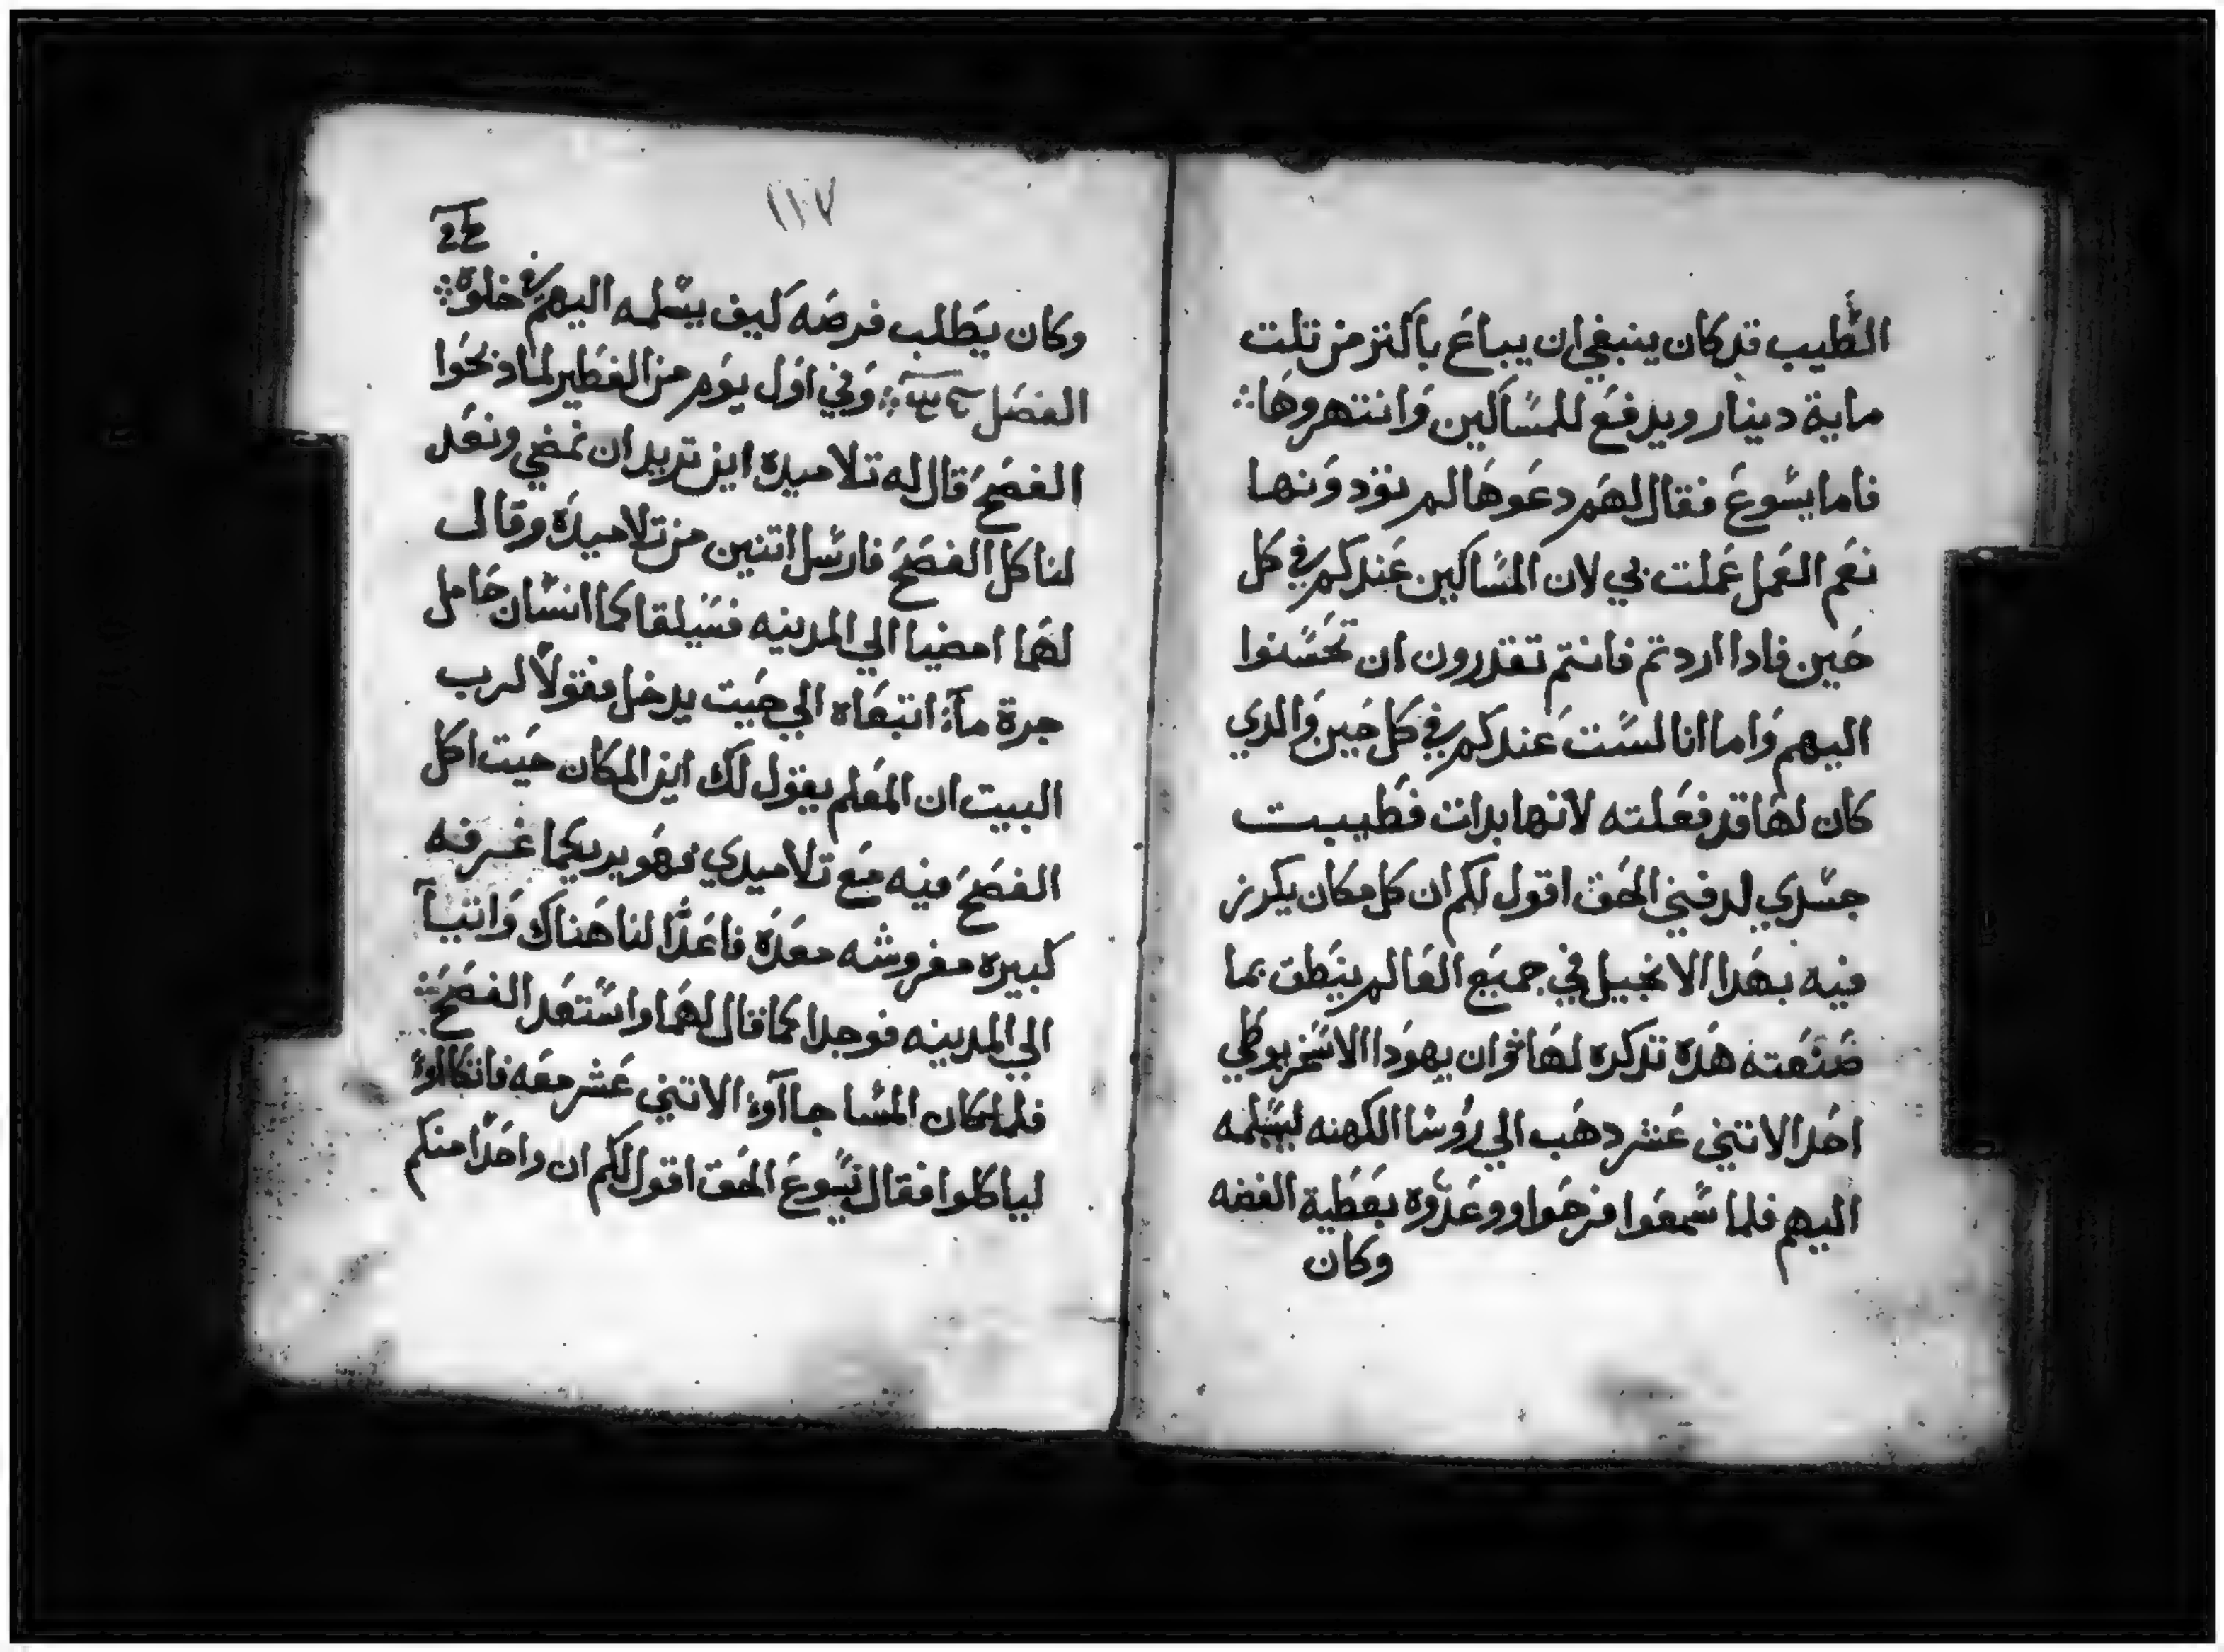 الطيب قد كان ينبغي ان يباع باكتر من تلت
ماية دينار ويدفع للمساكين وانتهروها
فاما يسوع فقال لهم دعوها لم تودونها
نعم العمل عملت بي لان المساكين عندكم في كل
حين فادا اردتم فانتم تقدرون ان تحسنوا
اليهم واما انا لست عندكم في كل حين والدي
كان لها قد فعلته لانها بدات فطيبت
جسدي لدفني الحق اقول لكم ان كل مكان يكرز
فيه بهدا الانجيل في جميع العالم ينطق بما
صنعته هده تدكره لها وان يهودا الاسخريوطي
احد الاتني عشر دهب الي روسا الكهنه ليسلمه
اليهم فلما سمعوا فرحوا ووعدوه بعطية الفضه
وكان
١١٧
وكان يطلب فرصه كيف يسلمه اليهم في خلوه
الفصل وفي اول يوم من الفطير لما دبحوا
الفصح قال له تلاميده اين تريد ان نمضي ونعد
لنا كل الفصح فارسل اتنين من تلاميده وقال
لهما امضيا الي المدينه فسيلقا كما انسان حامل
جرة مآء اتبعاه الي حيت يدخل فقولا لرب
البيت ان المعلم يقول لك اين المكان حيت اكل
الفصح فيه مع تلاميدي فهو يريكما غرفه
كبيره مفروشه معده فاعدا لنا هناك واتيا
الي المدينه فوجدا كما قال لهما واستعد الفصح
فلما كان المسا جاآوا الاتني عشر معه فاتكاوا
لياكلوا فقال يسوع الحق اقول لكم ان واحدا منكم